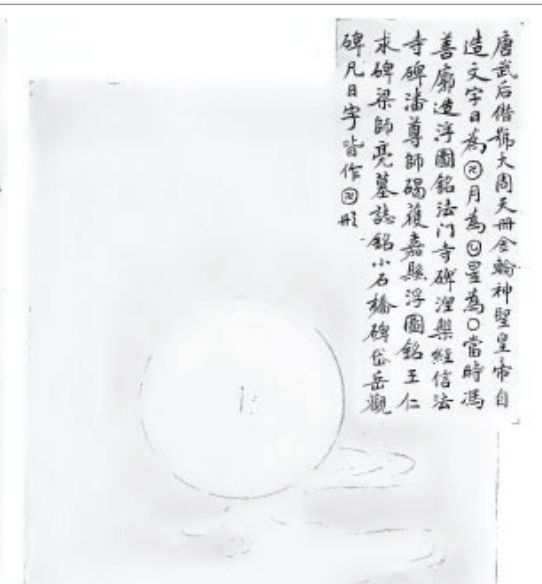 唐武后僭號大周天冊金輪神聖皇帝自
造文字日為㊣月為㊣星為〇當時馮
善廓造浮圖銘法門寺碑涅槃經信法
寺碑潘尊師碣獲嘉縣浮圖銘王仁
求碑梁師亮墓誌銘小石橋碑岱岳觀
碑凡日字皆作形